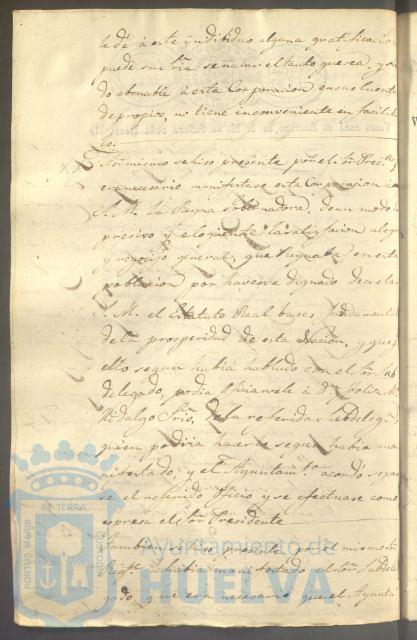 se dé á este individuo alguna gratificacion
puede su Sria señalar el tanto que sea, y sien
do abonable á esta Corporacion en sus cuentas
de propios, no tiene inconveniente en facilitar
lo.
Asimismo se hiso presente por el Sor Presite
era necesario manifestase esta Corporacion á
S. M. la Reyna Gobernadora, de un modo es
presivo y eloquente la satisfacion alegria
y regocijo general, que Reynaba en esta
poblacion por haverse dignado decretar
S. M. el Estatuto Real bases fundamental
de la prosperidad de esta Nacion, y que
segun habia hablado con el Sor Sub
delegado, podia
Hidalgo Srio, de la referida Subdelegon
quien podria hacerle segun habia ma
nifestado: y el Ayuntamto acordó se pa
se el referido oficio y se efectuase como
espresa el Sor Presidente
Tambien se hiso presente por el mismo Sor
habia manifestado el Sor Subdele
gado que era necesario que el Ayunta
PORTUS MARIS
ET TERRAE
Ayuntamiento de
HUELVA